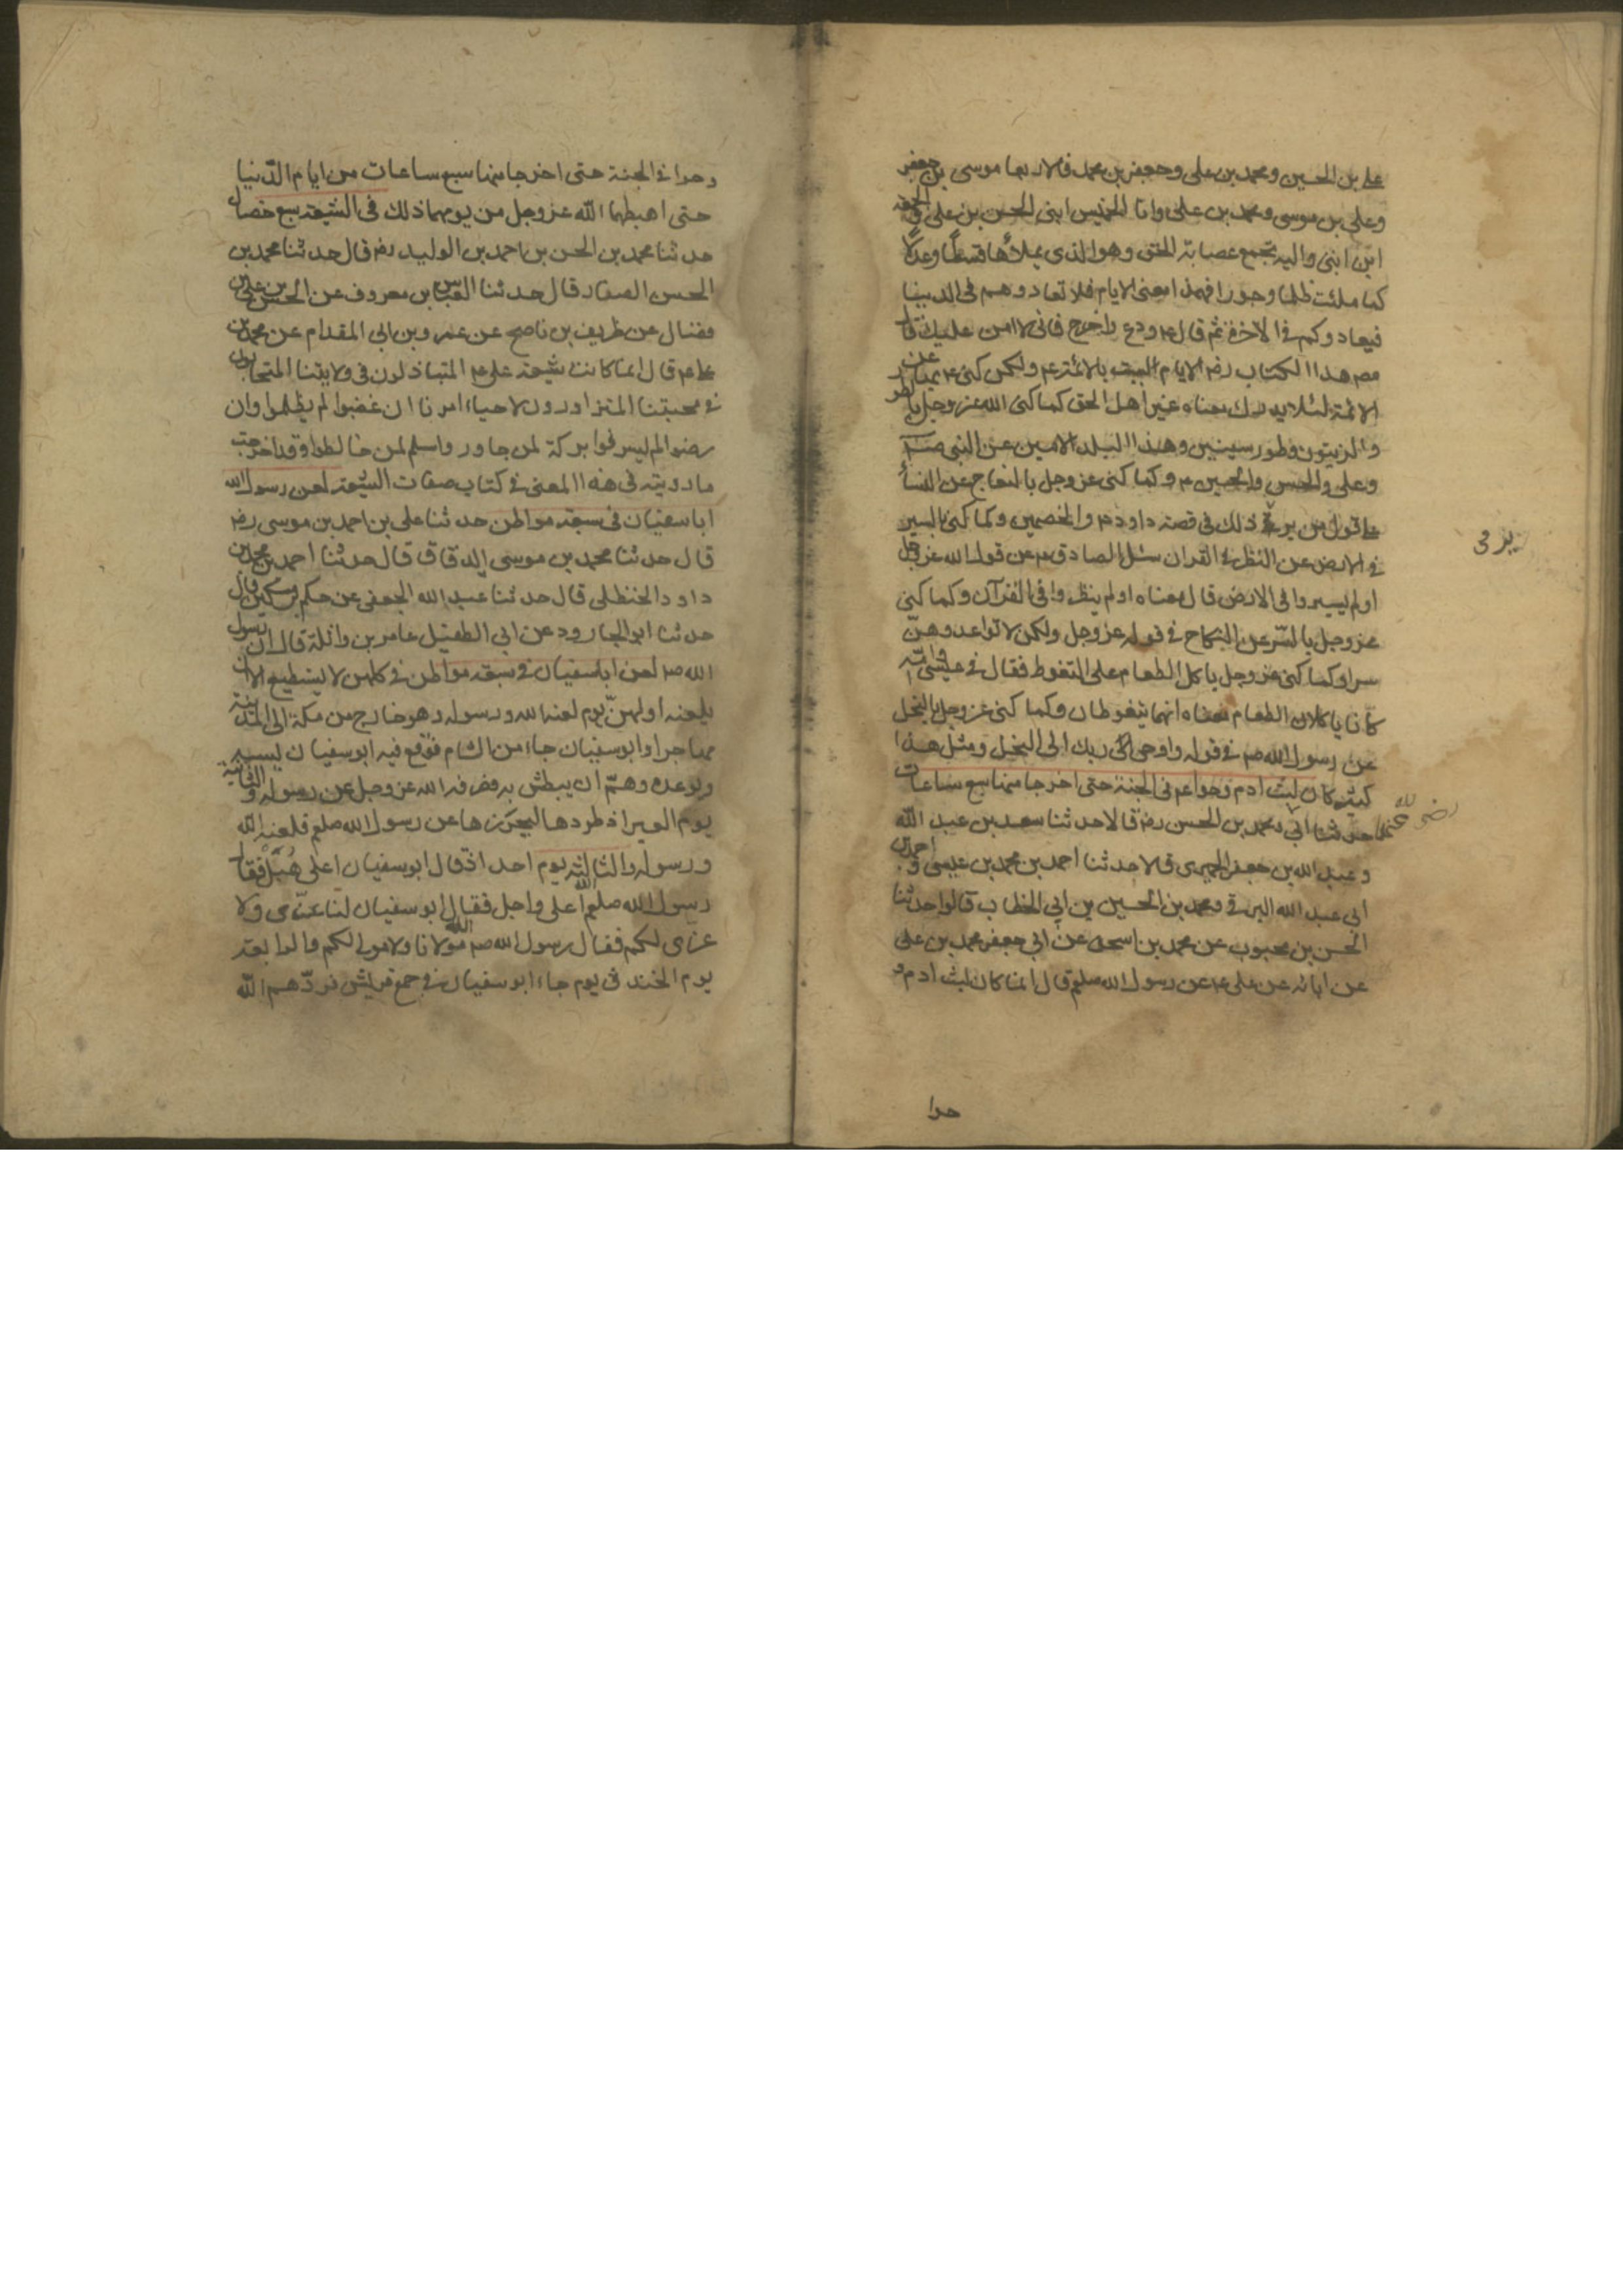 علي بن الحسين ومحمد بن علي وجعفر بن محمد والاربعا موسى بن جعفر
وعلي بن موسى ومحمد بن علي وانا الخميس ابني الحسن بن علي والجمعة
ابن ابني واليه تجمع عصابة الحق وهو الذي يملأها قسطا وعدلا
كما ملئت ظلما وجورا فهذا معنى الايام فلا تعادوهم في الدنيا
فيعادوكم في الاخرة ثم قال ع ودع واخرج فاني لا امن عليك قال
مصـ هذا الكتاب رضـ الايام ليست بالائمة ع ولكن كنى ع بها عن
الائمة لئلا يدرك معناه غير اهل الحق كما كنى الله عز وجل بالتين
والزيتون وطور سينين وهذا البلد الامين عن النبي صـ
وعلي والحسن والحسين ع وكما كنى عز وجل بالنعاج عن النساء
على قول من يرى ذلك في قصة داود ع والخصمين وكما كنى بالسير
في الارض عن النظر في القران سئل الصادق ع عن قول الله عز وجل
اولم يسيروا في الارض قال معناه اولم ينظروا في القرآن وكما كنى
عز وجل بالسّر عن النكاح في قوله عز وجل ولكن لا تواعدوهنّ
سرا وكما كنى عز وجل باكل الطعام على التغوط فقال في عيسى وامّه
كانا ياكلان الطعام معناه انهما يتغوطان وكما كنى عز وجل بالنحل
عن رسول الله صم في قوله واوحى ربك الى النحل ومثل هذا
كثير كان لبث ادم وحوا ع في الجنة حتى اخرجا منها سبع ساعات
حدثنا ابي ومحمد بن الحسن رضـ قالا حدثنا سعد بن عبد الله
رضي الله عنهما
وعبد الله بن جعفر الحميري قالا حدثنا احمد بن محمد بن عيسى واحمد بن
ابي عبد الله البرقي ومحمد بن الحسين بن ابي الخطاب قالوا حدثنا
الحسن بن محبوب عن محمد بن اسحق عن ابي جعفر محمد بن علي
عن ابائه عن علي ع عن رسول الله صلعم قال انما كان لبث ادم و
حوا
وحوا في الجنة حتى اخرجا منها سبع ساعات من ايام الدّنيا
حتى اهبطهما الله عز وجل من يومهما ذلك في الشيعة سبع خصال
حدثنا محمد بن الحسن بن احمد بن الوليد رضـ قال حدثنا محمد بن
الحسن الصفار قال حدثنا العباس بن معروف عن الحسن بن علي بن
فضال عن ظريف بن ناصح عن عمرو بن ابي المقدام عن محمد بن
علي ع قال انما كانت شيعة علي ع المتباذلون في ولايتنا المتحابون
في محبتنا المتزاورون لاحياء امرنا ان غضبوا لم يظلموا وان
رضوا لم يسرفوا بركة لمن جاور واسلم لمن خالطوا وقد اخرجت
ما رويته في هذا المعنى في كتاب صفات الشيعة لعن رسول الله
ابا سفيان في سبعة مواطن حدثنا علي بن احمد بن موسى رضـ
قال حدثنا محمد بن موسى الدقاق قال حدثنا احمد بن محمد بن
داود الحنظلي قال حدثنا عبد الله الجعفي عن حكم بن مسكين قال
حدثنا ابو الجارود عن ابي الطفيل عامر بن واثلة قال ان رسول
الله صم لعن ابا سفيان في سبعة مواطن في كلهن لا يستطيع الا ان
يلعنه اولهنّ يوم لعنه الله ورسوله وهو خارج من مكة الى المدينة
مهاجرا وابو سفيان جاء من الشام فوقع فيه ابو سفيان ليسبه
ويوعده وهمّ ان يبطش به فصرفه الله عز وجل عن رسوله والثانية
يوم العير اذ طردها ليحرزها عن رسول الله صلعم فلعنه الله
ورسوله والثالثة يوم احد اذ قال ابو سفيان اعلى هُبَل فقال
رسول الله صلعم الله اعلى واجل فقال ابو سفيان لنا عزّى ولا
عزى لكم فقال رسول الله صم الله مولانا ولا مولى لكم والرابعة
يوم الخندق يوم جاء ابو سفيان في جمع قريش فردّهم الله